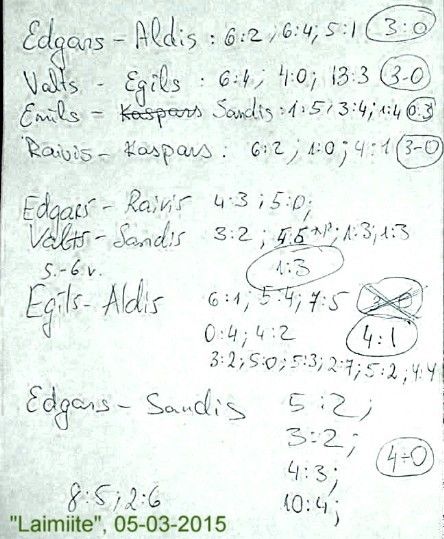 Edgars - Aldis : 6:2 ; 6:4 ; 5:1 3:0
Valts - Egils : 6:4 ; 4:0 ; 13:3 3-0
Emils - Kaspars Sandis : 1:5 ; 3:4 ; 1:4 0:3
Raivis - Kaspars : 6:2 ; 1:0 ; 4:1 3-0
Edgars - Raivis 4:3 ; 5:0 ;
Valts - Sandis 3:2 ; 1:3 ; 1:3
5.-6.v. 1:3
Egils - Aldis 6:1 ; 5:4 ; 7:5
0:4 ; 4:2 4:1
3:2 ; 5:0 ; 5:3 ; 2:7 ; 5:2 ; 4:4
Edgars - Sandis 5:2 ;
3:2 ;
4:3 ; 4-0
8:5 ; 2:6 10:4 ;
"Laimiite", 05-03-2015